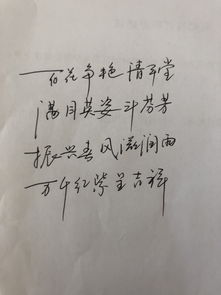 百花争艳清平堂
满目英姿斗芬芳
振兴春风滋润雨
万千红紫呈吉祥